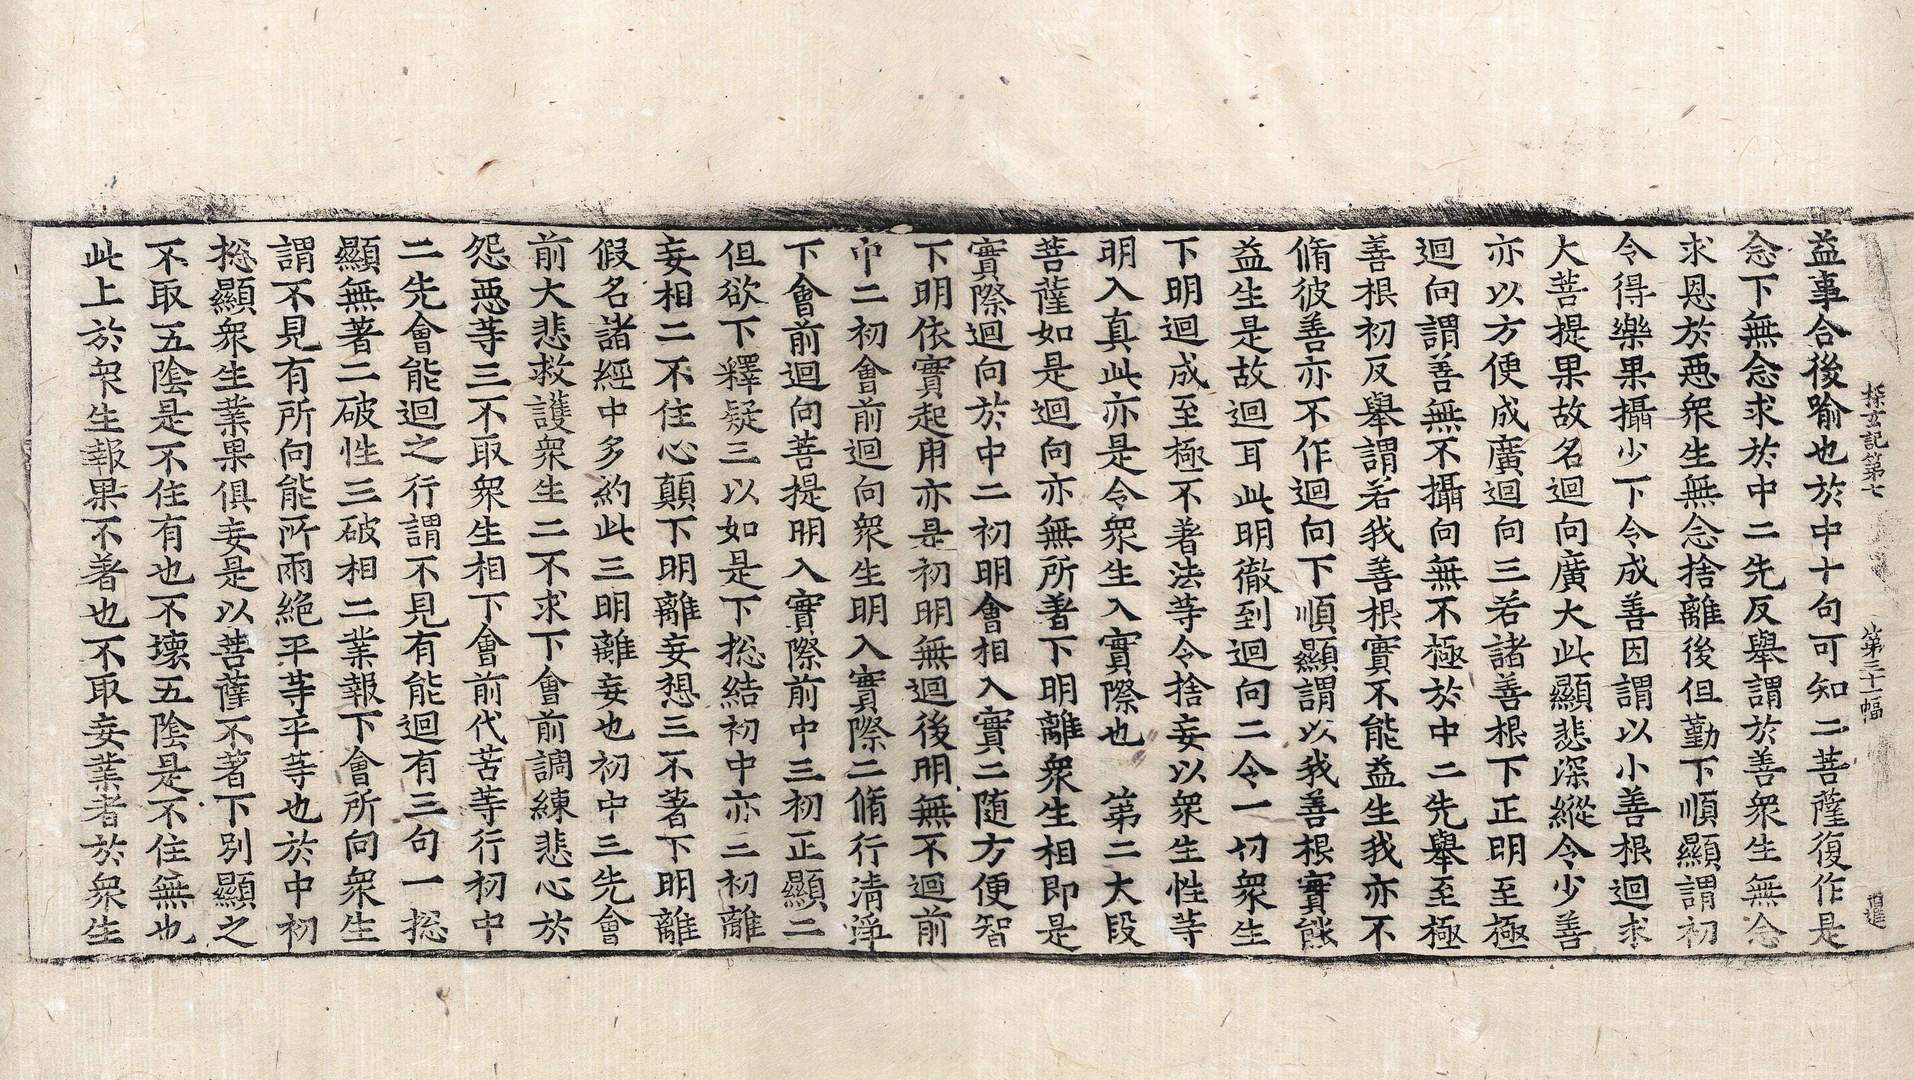 探玄記第七 第三十二幅
益事合後喻也於中十句可知二菩薩復作是
念下無念求於中二先反舉謂於善衆生無念
求恩於惡衆生無念捨離後但勤下順顯謂初
令得樂果攝少下令成善因謂以小善根迴求
大菩提果故名迴向廣大此顯悲深縱令少善
亦以方便成廣迴向三若諸善根下正明至極
迴向謂善無不攝向無不極於中二先舉至極
善根初反舉謂若我善根實不能益生我亦不
脩彼善亦不作迴向下順顯謂以我善根實能
益生是故迴耳此明徹到迴向二令一切衆生
下明迴成至極不著法等令捨妄以衆生性等
明入真此亦是令衆生入實際也 第二大段
菩薩如是迴向亦無所著下明離衆生相即是
實際迴向於中二初明會相入實二随方便智
下明依實起用亦是初明無迴後明無不迴前
中二初會前迴向衆生明入實際二脩行清淨
下會前迴向菩提明入實際前中三初正顯二
但欲下釋疑三以如是下捴結初中亦二初離
妄相二不住心顛下明離妄想三不著下明離
假名諸經中多約此三明離妄也初中三先會
前大悲救護衆生二不求下會前調練悲心於
怨惡等三不取衆生相下會前代苦等行初中
二先會能迴之行謂不見有能迴有三句一捴
顯無著二破性三破相二業報下會所向衆生
謂不見有所向能所兩絶平等平等也於中初
捴顯衆生業果俱妄是以菩薩不著下別顯之
不取五陰是不住有也不壞五陰是不住無也
此上於衆生報果不著也不取妄業者於衆生